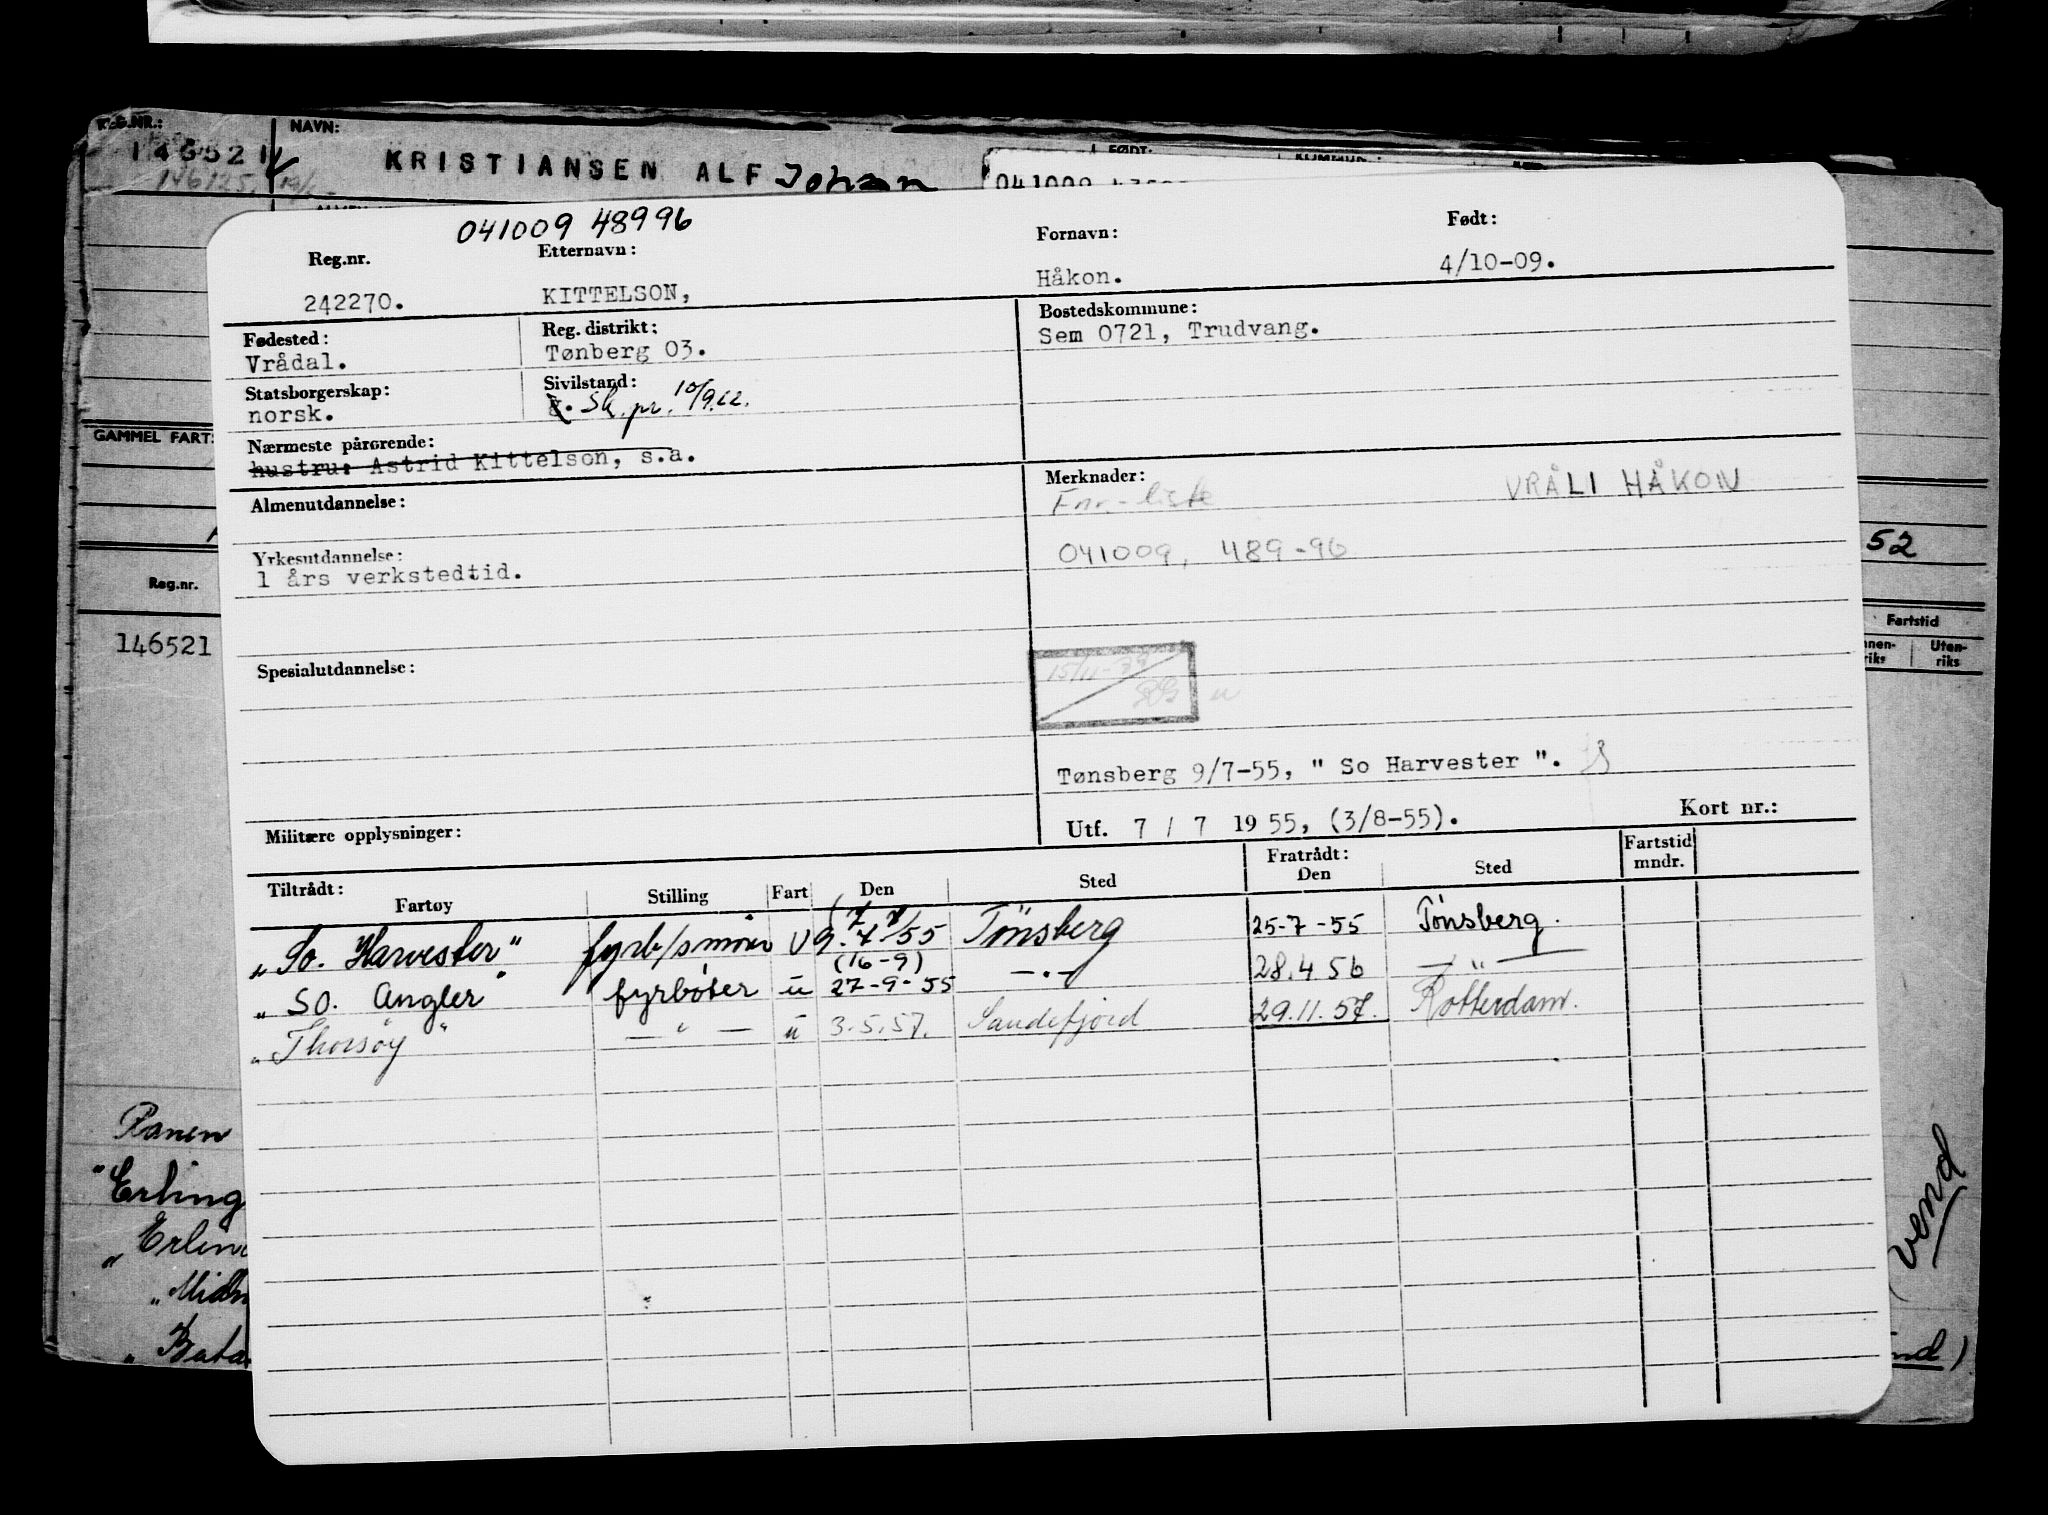 REG.NR.: NAVN: FØDT:
146521 KRISTIANSEN ALF Johan 041009
146125
041009 48996
Reg.nr. Etternavn: Fornavn: Født:
242270. KITTELSON, Håkon. 4/10-09.
Fødested: Reg. distrikt: Bostedskommune:
Vrådal. Tønberg 03. Sem 0721, Trudvang.
Statsborgerskap: Sivilstand:
norsk. g. Sk. pr. 10/9.62.
GAMMEL FARTS
Nærmeste pårørende:
hustru: Astrid Kittelson, s.a.
Almenutdannelse: Merknader:
Fnr.-liste VRÅLI HÅKON
Yrkesutdannelse: 041009, 489-96 52
1 års verkstedtid.
Reg.nr. Fartstid
146521 Uten-
riks riks
Spesialutdannelse:
Tønsberg 9/7-55, " So Harvester ".
Militære opplysninger: Utf. 7 / 7 1955, (3/8-55). Kort nr.:
Tiltrådt: Fratrådt: Fartstid
Fartøy Stilling Fart Den Sted Den Sted mndr.
"So. Harvester" fyrb/smører U 9.7 /55 Tönsberg 25-7-55 Tönsberg.
(16-9)
"So. Angler" fyrböter u 27-9-55 —"— 28.4.56 —"—
"Thorsöy" —"— u 3.5.57. Sandefjord 29.11.57. Rotterdam.
Ranen
"Erling
"Erlin
vend
"Bata